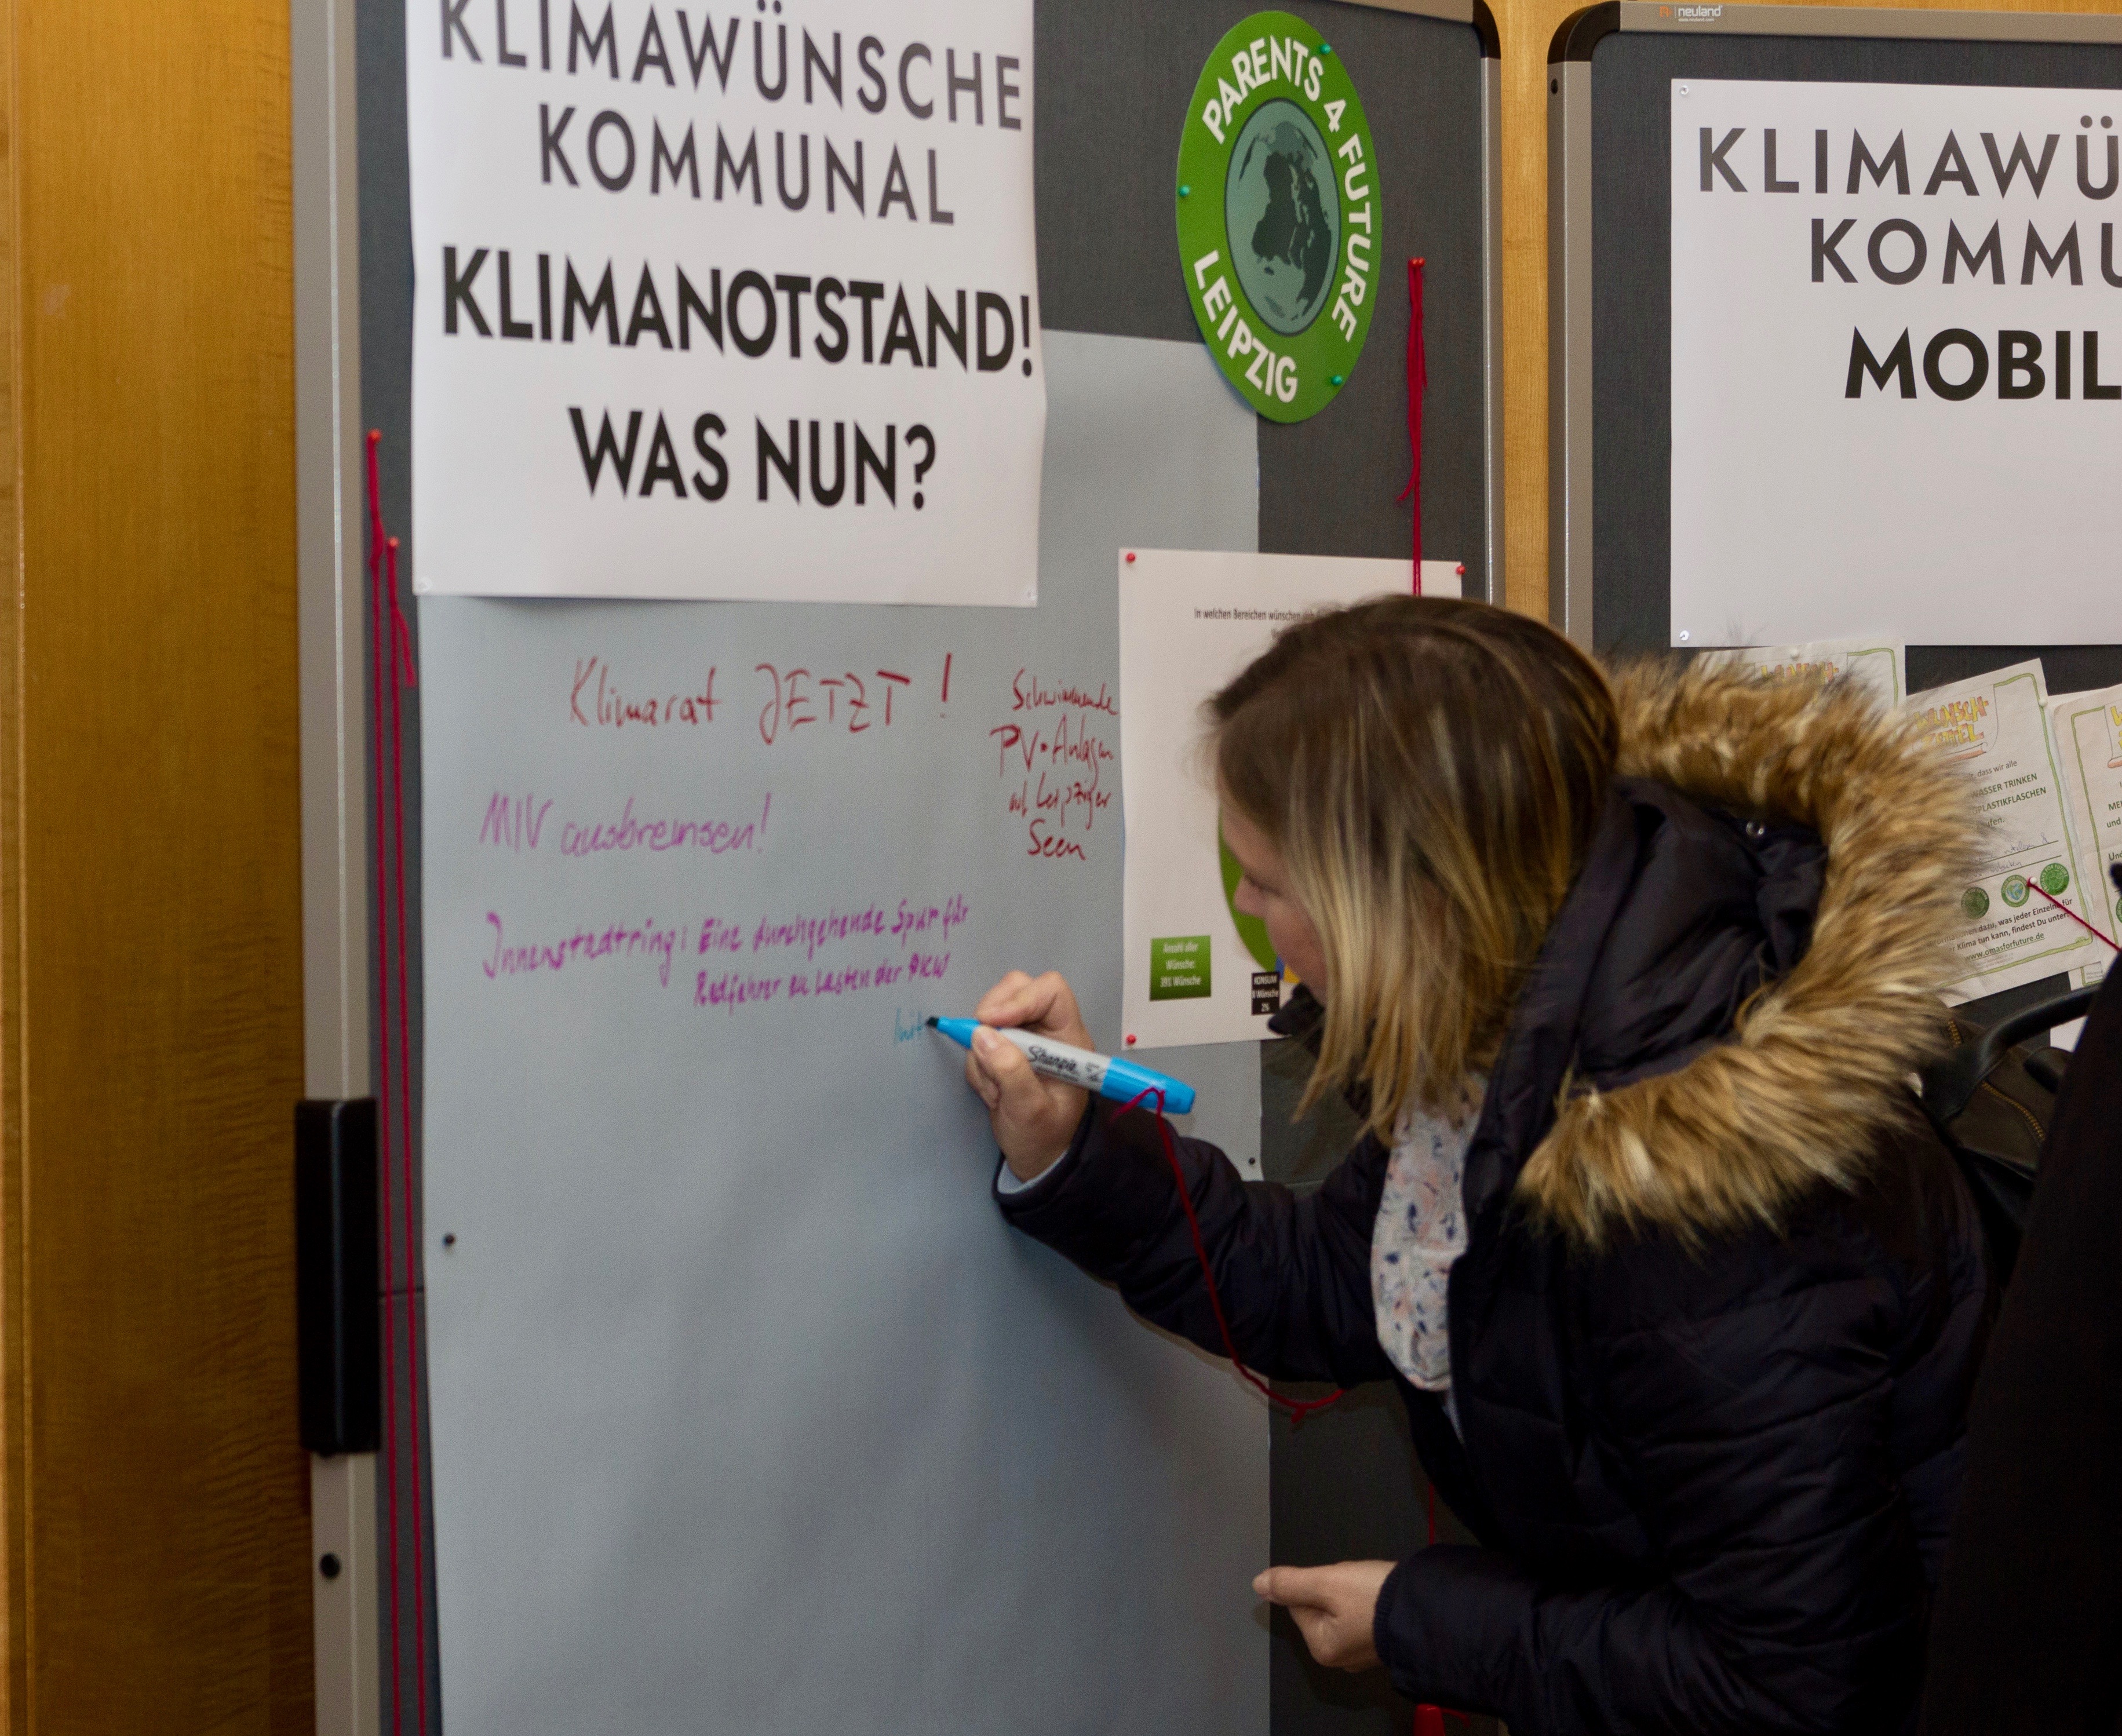 KLIMAWÜNSCHE
KOMMUNAL
KLIMANOTSTAND!
WAS NUN?
PARENTS 4 FUTURE
LEIPZIG
Klimarat JETZT!
Schwimmende
PV-Anlagen
auf Leipziger
Seen
MIV ausbremsen!
Innenstadtring: Eine durchgehende Spur für
Radfahrer zu Lasten der PKW
In welchen Bereichen wünschen
Anzahl aller
Wünsche:
391 Wünsche
KONSUM
Wünsche
Sharpie
neuland
KLIMAWÜ
KOMMU
MOBIL
WUNSCH-
ZETTEL
, dass wir alle
WASSER TRINKEN
PLASTIKFLASCHEN
dazu, was jeder Einzelne für
Klima tun kann, findest Du unter:
www.omasforfuture.de
ME
und
Und